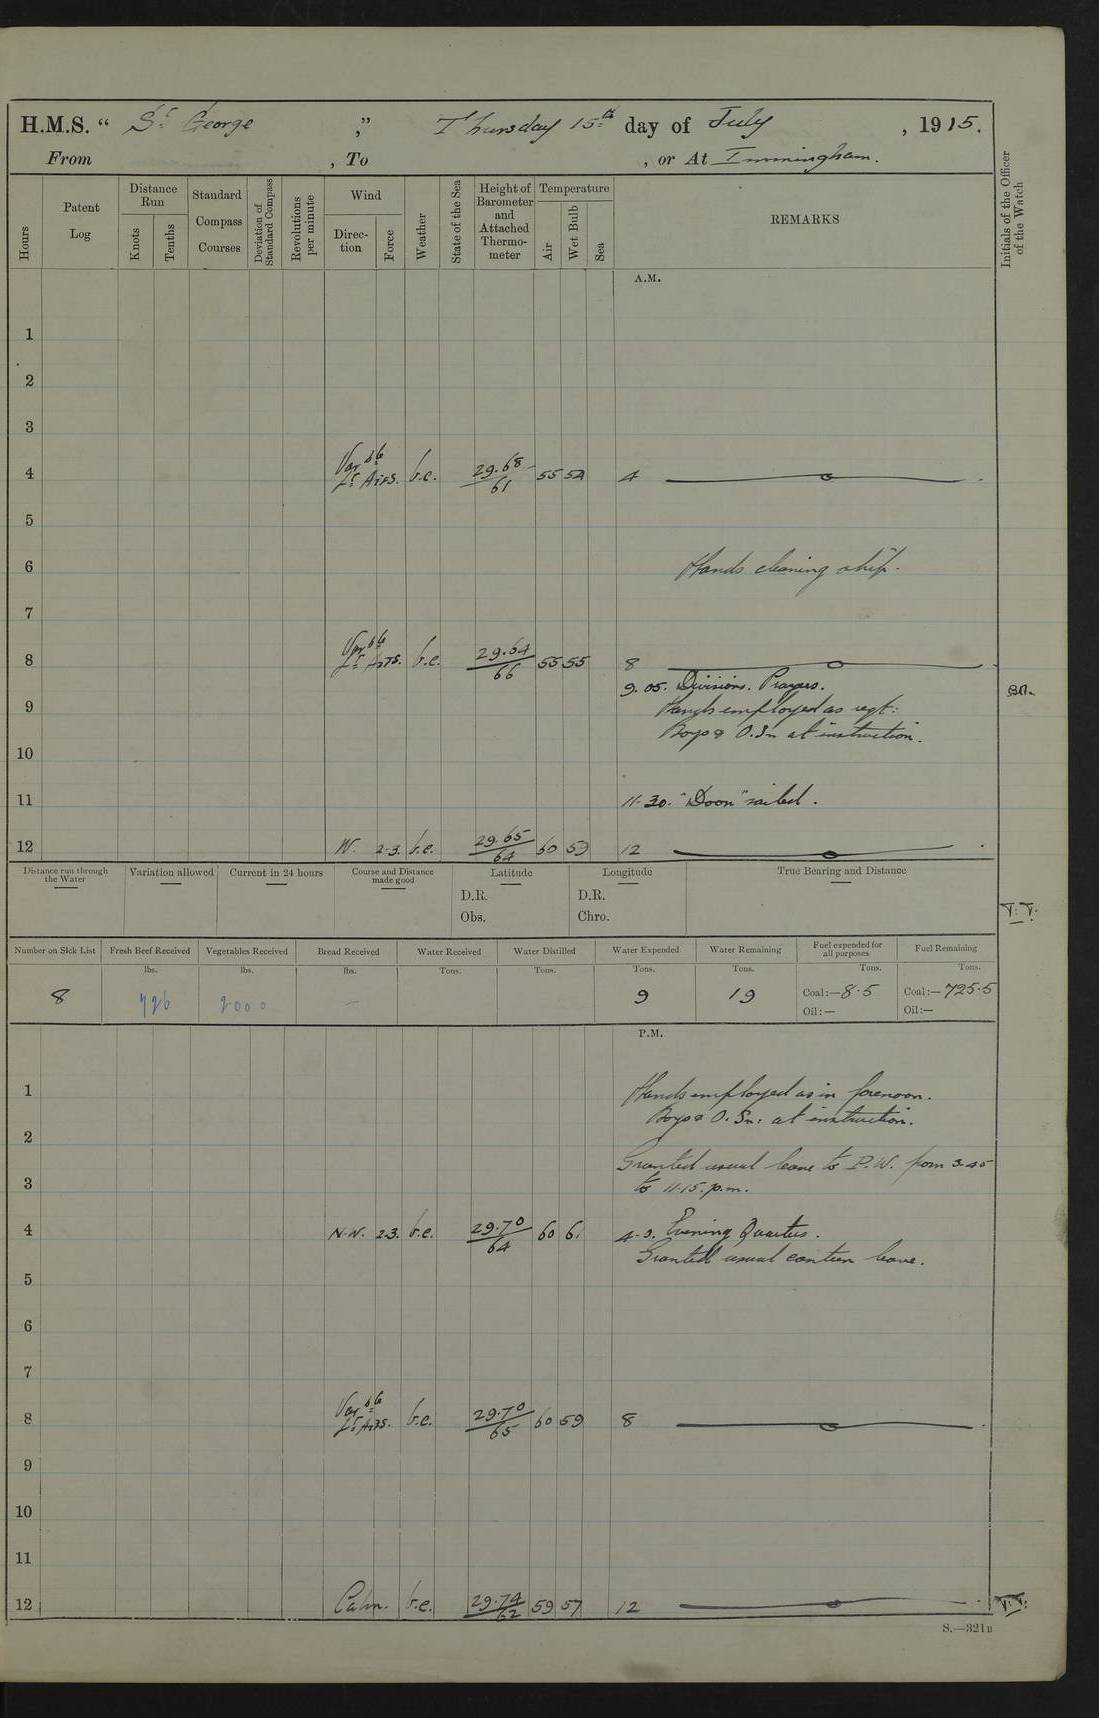 H.M.S. “ St George ,” Thursday 15th day of July , 1915.
From , To , or At Immingham.
Hours
Patent Log
Distance Run
Knots
Tenths
Standard Compass Courses
Deviation of Standard Compass
Revolutions per minute
Wind
Direc-tion
Force
Weather
State of the Sea
Height of Barometer and Attached Thermo-meter
Temperature
Air
Wet Bulb
Sea
REMARKS
Initials of the Officer of the Watch
A.M.
1
2
3
4 Varble Lt Airs. b.c. 29.68/61 55 54 4
5
6 Hands cleaning ship.
7
8 Varble Lt Airs. b.c. 29.64/66 55 55 8
9.05. Divisions. Prayers.
9 Hands employed as reqt:
Boys & O.Sn at instruction.
10
11 11.30. "Doon" sailed.
12 W. 2-3. b.c. 29.65/64 60 59 12
Distance run through the Water
Variation allowed
Current in 24 hours
Course and Distance made good
Latitude
D.R.
Obs.
Longitude
D.R.
Chro.
True Bearing and Distance
Number on Sick List Fresh Beef Received Vegetables Received Bread Received Water Received Water Distilled Water Expended Water Remaining Fuel expended for all purposes Fuel Remaining
lbs. lbs. lbs. Tons. Tons. Tons. Tons. Tons. Tons.
8 726 2000 — 9 19 Coal:—8.5 Coal:—725.5
Oil:— Oil:—
P.M.
1 Hands employed as in forenoon.
Boys & O.Sn: at instruction.
2
Granted usual leave to P.W. from 3.45
3 to 11.15. p.m.
4 N.W. 2-3. b.c. 29.70/64 60 61 4.0. Evening Quarters.
Granted usual canteen leave.
5
6
7
8 Varble Lt Airs. b.c. 29.70/65 60 59 8
9
10
11
12 Calm. b.c. 29.74/62 59 57 12
S.—321B